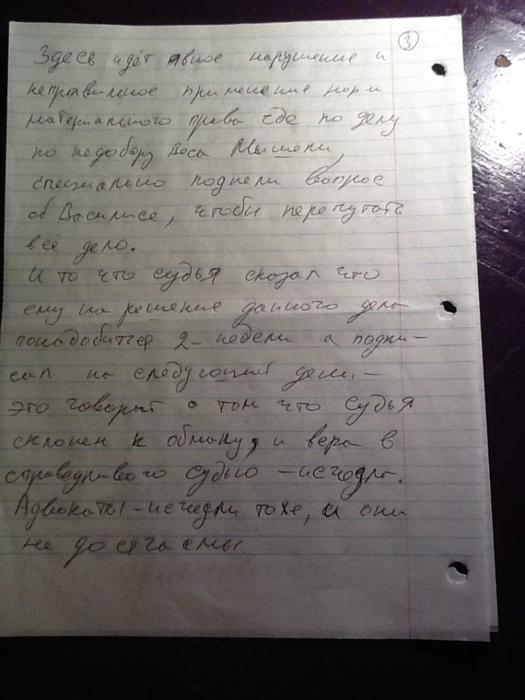 3
Здесь идёт явное нарушение и
неправильное применение норм
материального права где по делу
по недобору веса Мишели,
специально подняли вопрос
об Василисе, чтобы перепутать
все дело.
И то что судья сказал что
ему на решение данного дела
понадобится 2-недели а подпи-
сал на следующий день. –
это говорит о том что судья
склонен к обману, и вера в
справедливого судью – исчезла.
Адвокаты – исчезли тоже, и они
не досягаемы.